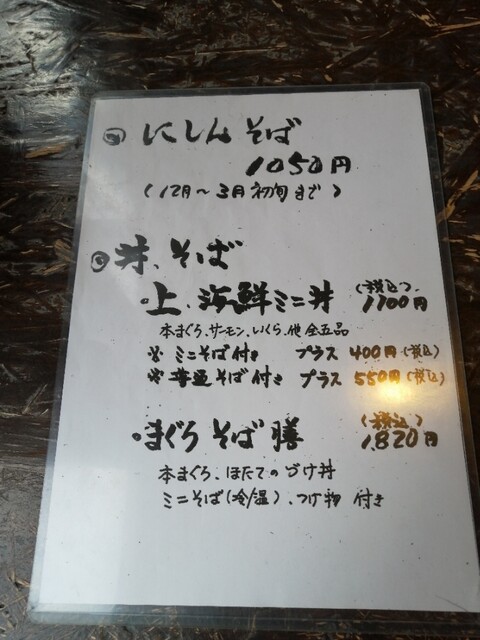 にしんそば
1050円
(12月〜3月初旬まで)
丼、そば
・上、海鮮ミニ丼 (税込) 1700円
本まぐろ、サーモン、いくら、他 全五品
※ミニそば付き プラス 400円(税込)
※普通そば付き プラス 550円(税込)
・まぐろそば膳 (税込) 1,820円
本まぐろ、ほたてのづけ丼
ミニそば(冷/温)、つけ物 付き